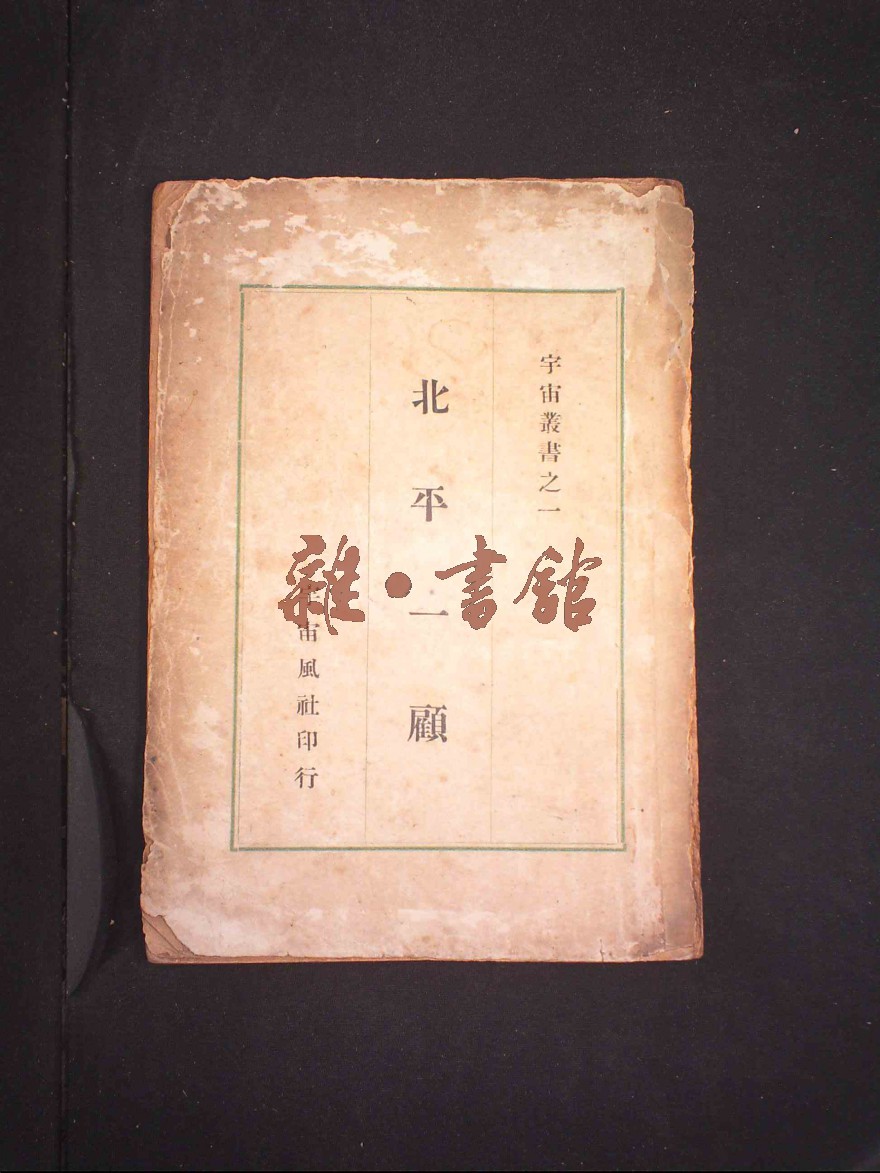 宇宙叢書之一
北平一顧
宇宙風社印行
雜•書館